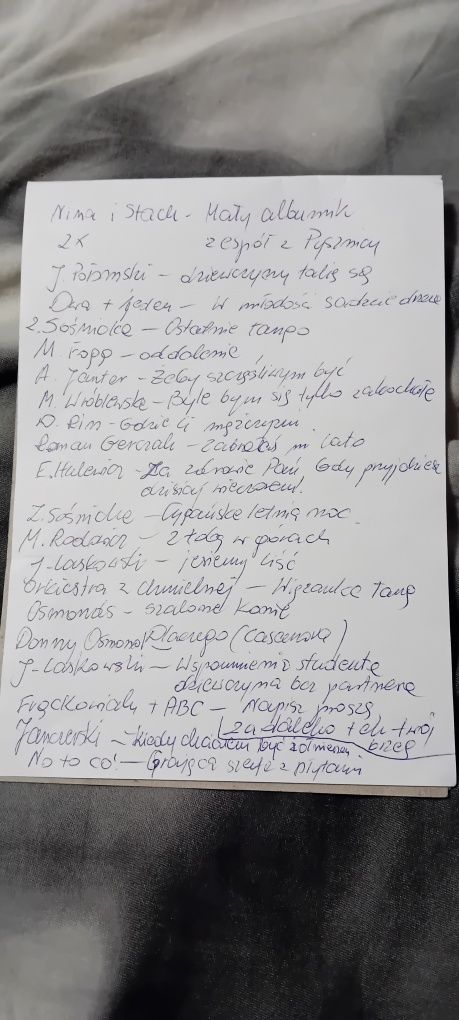 Nina i Stach - Mały albumik
2x zespół z Pysznicy
J. Połomski - dziewczyny talię są
Dwa + jeden - W młodości sadzie
Z. Sośnicka - Ostatnie tango
M. Fogg - oddalenie
A. Janter - Żeby szczęśliwym być
M. Wróblewska - Byle bym się tylko zakochała
D. Rim - Gdzie Ci mężczyzni.
Roman Gerczak - Zabrałaś mi lato
E. Hulewicz - Za zdrowie Pań Gdy przyjdziesz
dzisiaj wieczorem!
Z. Sośnicka - Cygańską letnią noc.
M. Rodowicz - z tobą w górach
J. Laskowski - jesienny liść
Orkiestra z Chmielnej - Wiązanka Tang
Osmonds - szalone konie
Donny Osmond Dlaczego (Casanova)
J. Laskowski - Wspomnienie studenta
dziewczyna bez partnera
Frąckowiak + ABC - Napisz proszę
za daleko + ten twój brzeg
Janczerski - kiedy chciałem być żołnierzem
No to co' - Grającą szafę z płytami